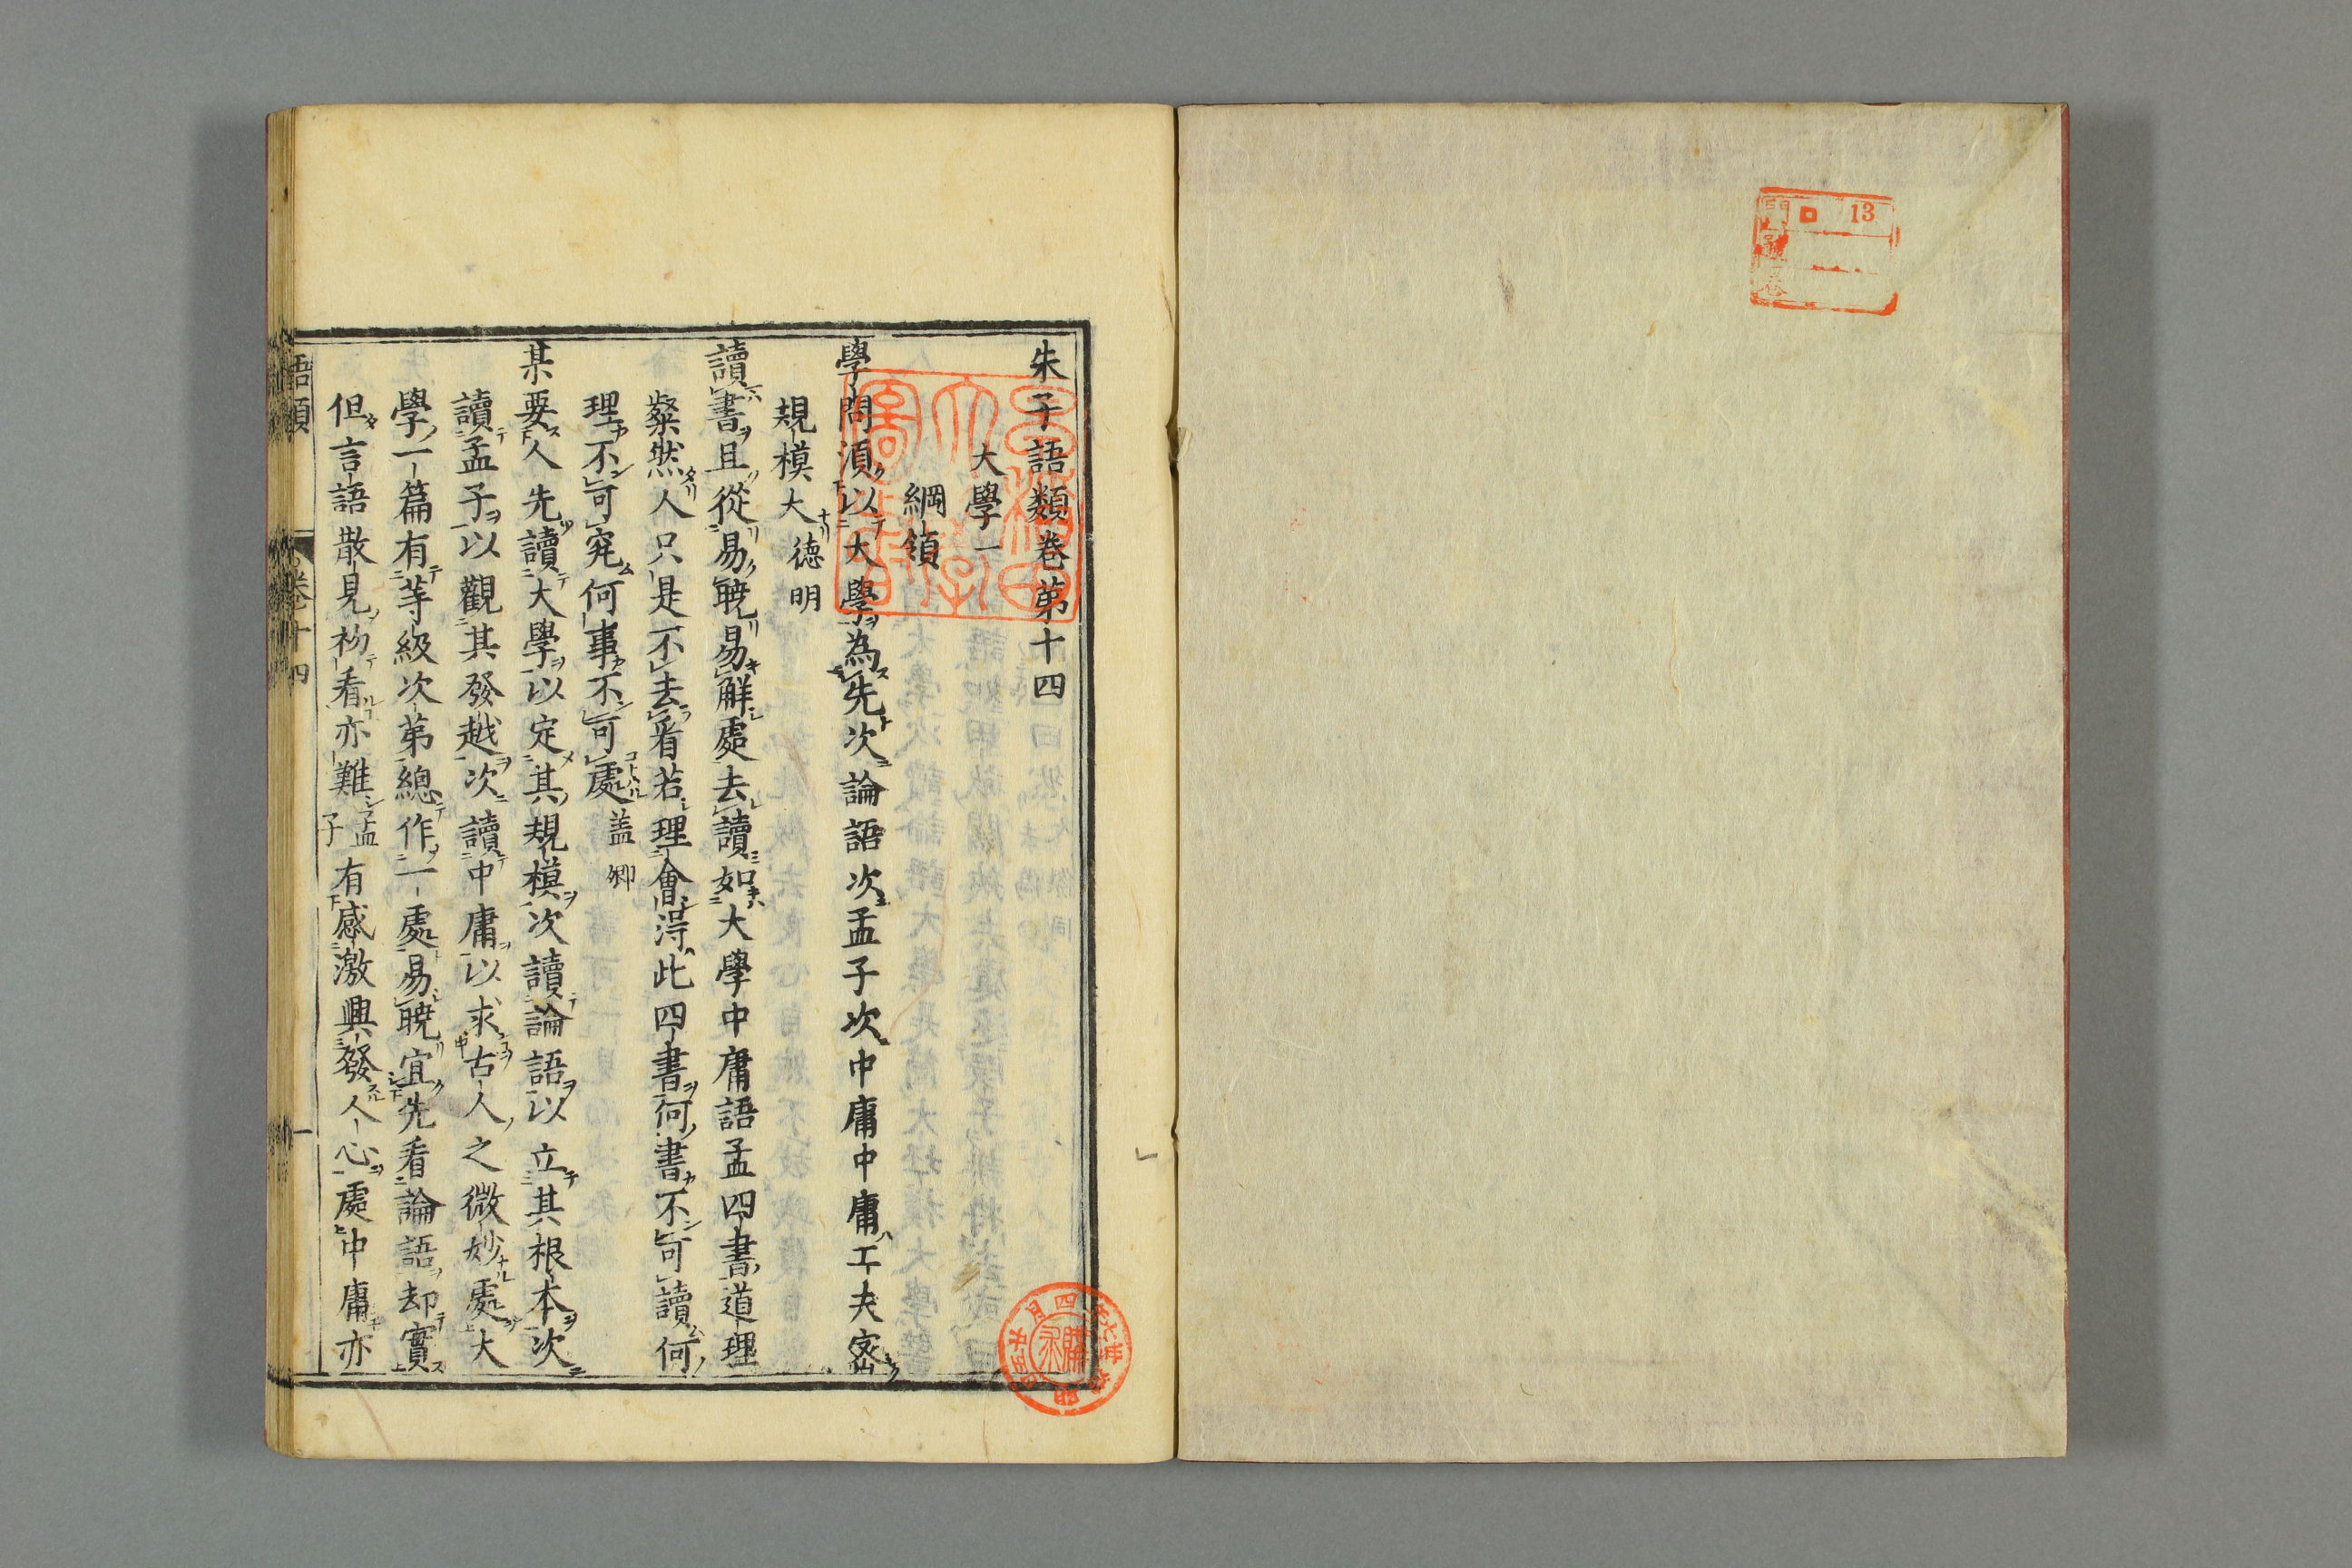 朱子語類卷第十四
大學一
綱領
學問須以大學為先次論語次孟子次中庸中庸工夫密
規模大德明
讀書且從易曉易解處去讀如大學中庸語孟四書道理
粲然人只是不去看若理會得此四書何書不可讀何
理不可究何事不可處蓋卿
某要人先讀大學以定其規模次讀論語以立其根本次
讀孟子以觀其發越次讀中庸以求古人之微妙處大
學一篇有等級次第總作一處易曉宜先看論語却實
但言語散見初看亦難孟子有感激興發人心處中庸亦
語類
卷十四
一
13